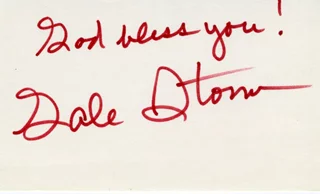 God bless you!
Gale Storm